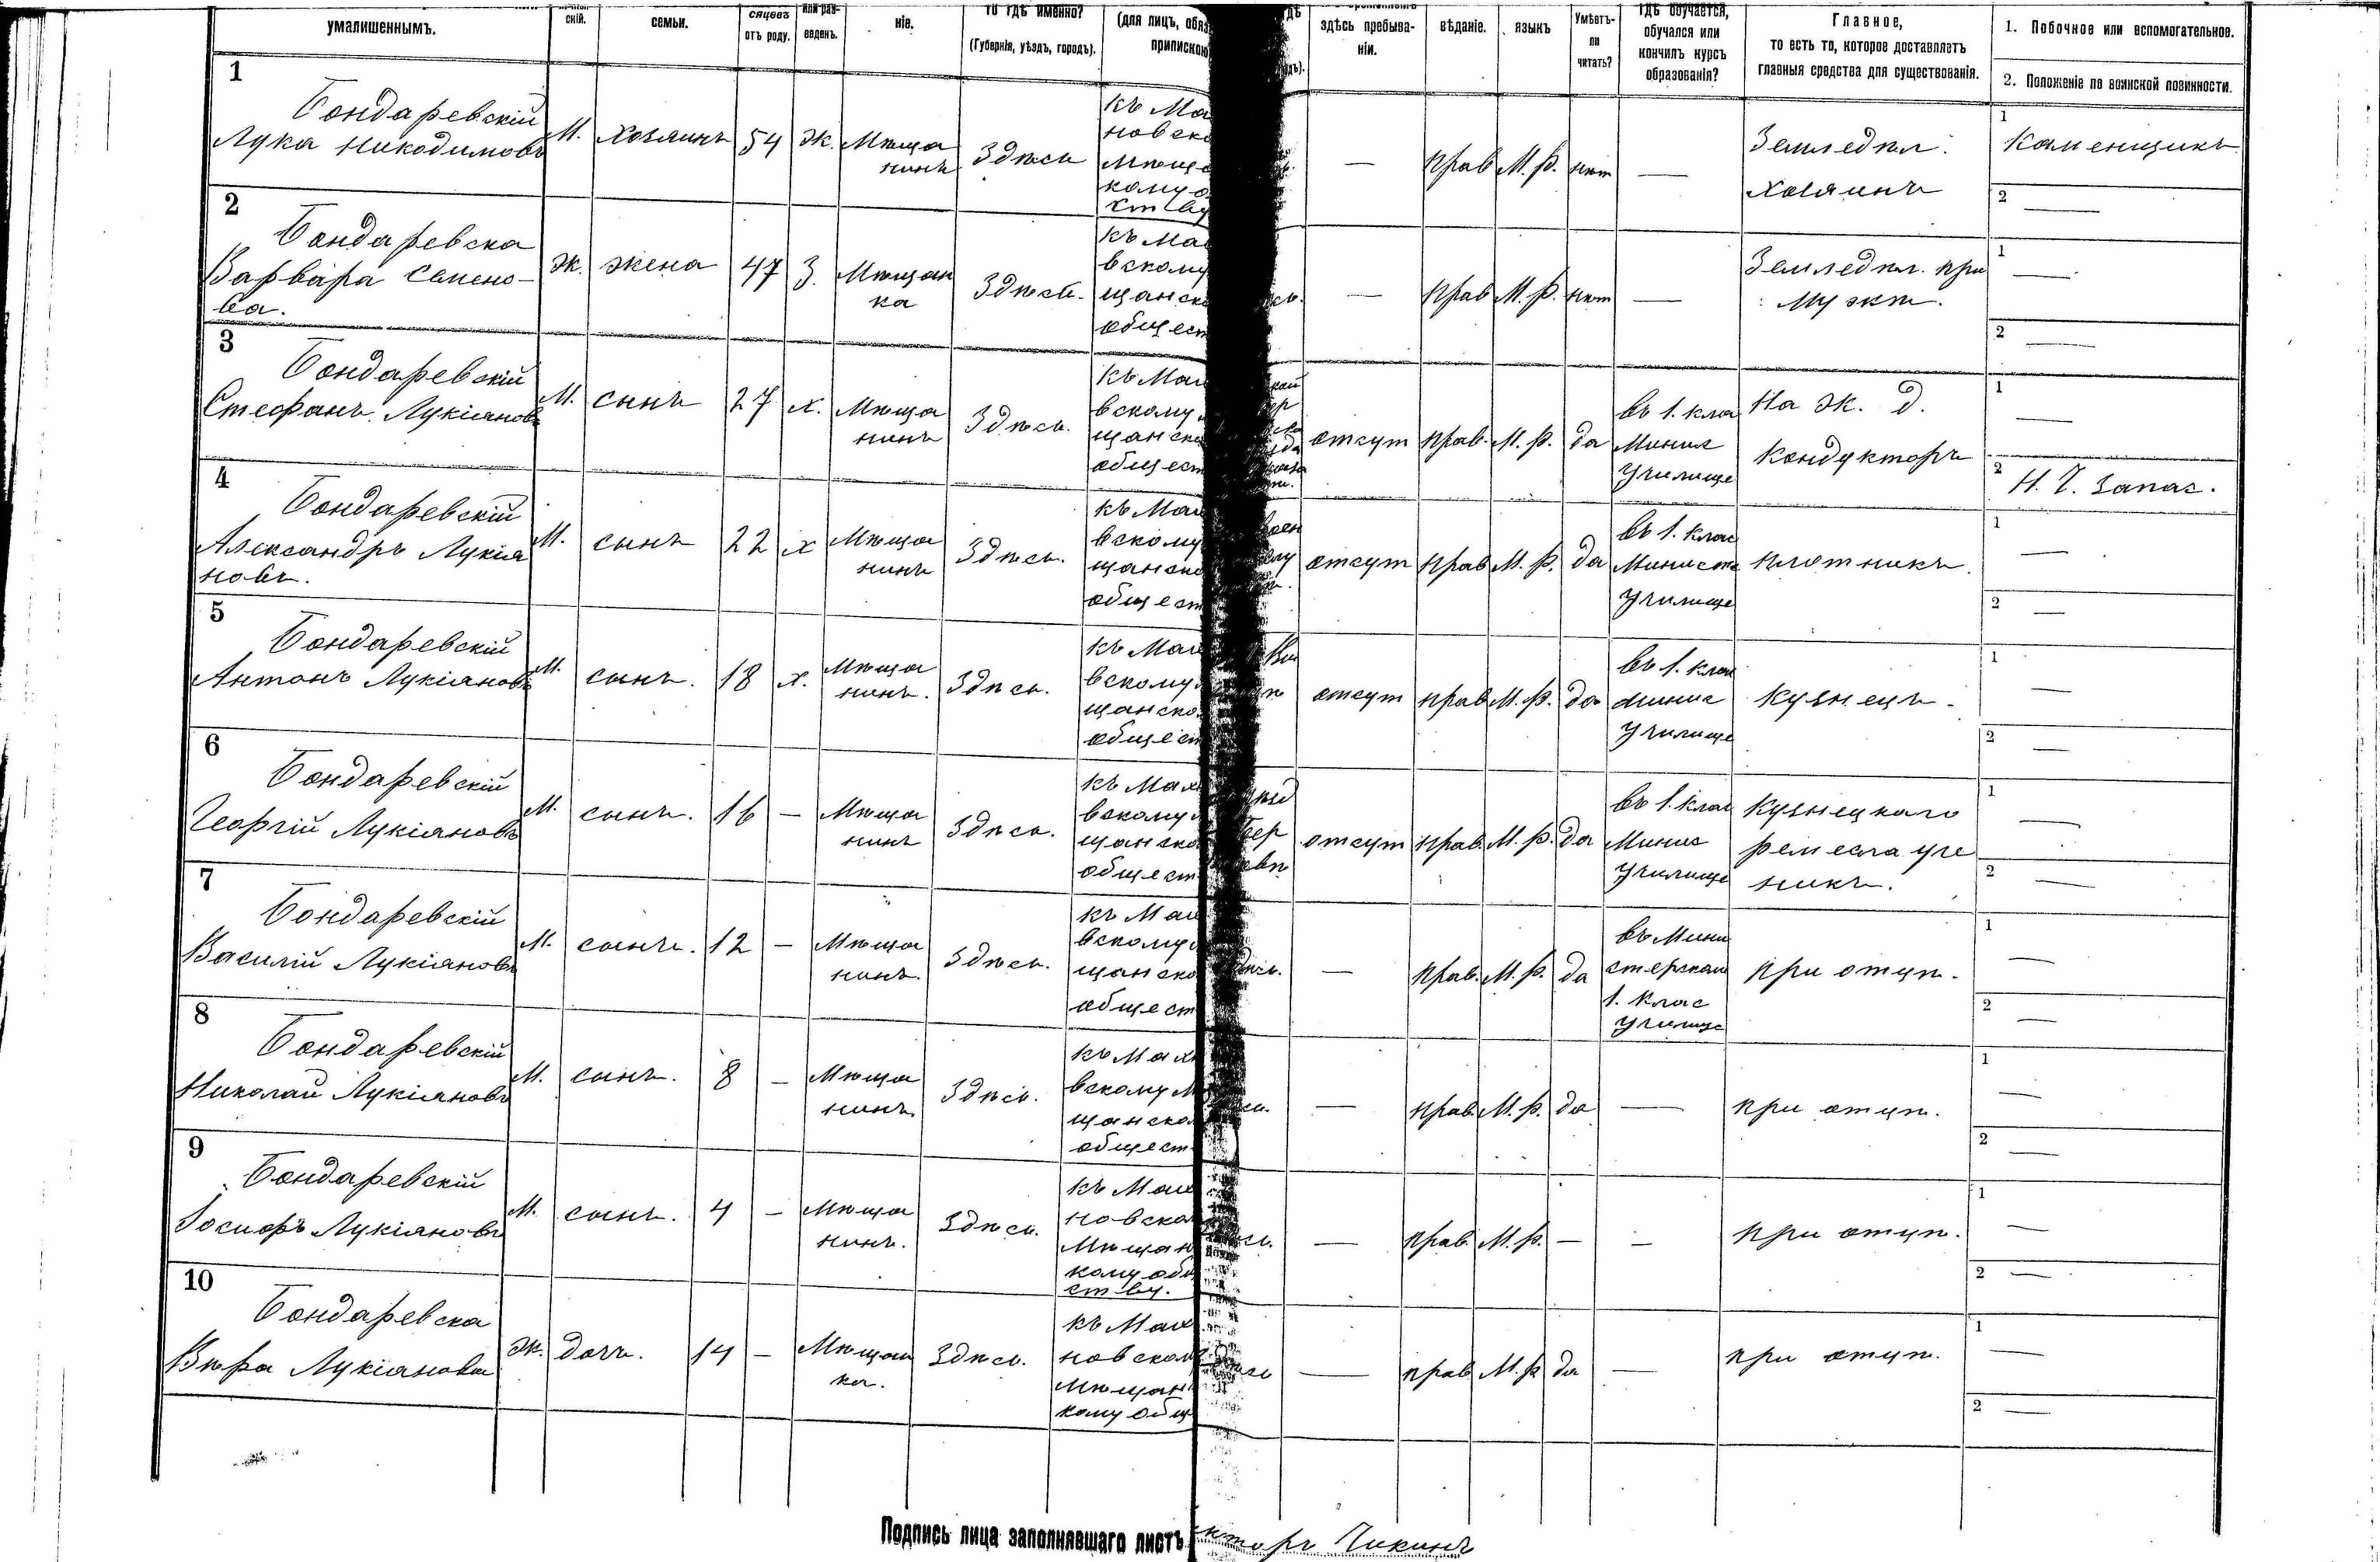 умалишеннымъ.
скій.
семьи.
сяцевъ
отъ роду.
или раз-
веденъ.
ніе.
то гдѣ именно?
(Губернія, уѣздъ, городъ).
(для лицъ, обяз
припискою
здѣсь пребыва-
ніи.
вѣданіе.
языкъ
Умѣетъ-
ли
читать?
гдѣ обучается,
обучался или
кончилъ курсъ
образованія?
Главное,
то есть то, которое доставляетъ
главныя средства для существованія.
1. Побочное или вспомогательное.
2. Положеніе по воинской повинности.
1
Бондаревскій
Лука Никодимовъ
М.
Хозяинъ
54
Ж.
Мѣща
нинъ
Здѣсь
къ Ма
новско
Мѣща
кому о
ству
—
прав
М. р.
нѣт
—
Земледѣл.
хозяинъ
1
Каменщикъ
2 —
2
Бондаревска
Варвара Семено-
ва.
Ж.
жена
47
З.
Мѣщан
ка
Здѣсь.
къ Ма
вскому
щанско
общест
сь.
—
прав
М. р.
нѣт
—
Земледѣл. при
мужѣ.
1 —
2 —
3
Бондаревскій
Стефанъ Лукіановъ
М.
сынъ
27
х.
Мѣща
нинъ
Здѣсь.
къ Мах
вскому
щанско
общест
отсут
прав.
М. р.
да
въ 1. кла
Минис
Училище
На ж. д.
Кондукторъ
1 —
2 Н. Ч. Запас.
4
Бондаревскій
Александръ Лукіа
новъ.
М.
сынъ
22
х
Мѣща
нинъ
Здѣсь.
къ Мах
вскому
щанско
общест
отсут
прав
М. р.
да
въ 1. клас
Министе
Училище
плотникъ
1 —
2 —
5
Бондаревскій
Антонъ Лукіановъ
М.
сынъ.
18
х.
Мѣща
нинъ.
Здѣсь.
къ Мах
вскому
щанско
общест
отсут
прав
М. р.
да
въ 1. клас
Минис
Училище
Кузнецъ.
1 —
2 —
6
Бондаревскій
Георгій Лукіановъ
М.
сынъ.
16
—
Мѣща
нинъ
Здѣсь.
къ Мах
вскому
щанско
общест
отсут
прав.
М. р.
да
въ 1. клас
Минис
Училище
Кузнецкаго
ремесла уче
никъ.
1 —
2 —
7
Бондаревскій
Василій Лукіановъ
М.
сынъ.
12
—
Мѣща
нинъ.
Здѣсь.
къ Мах
вскому
щанско
общест
—
прав.
М. р.
да
въ Мини
стерском
1. клас
Училище
при отцѣ.
1 —
2 —
8
Бондаревскій
Николай Лукіановъ
М.
сынъ.
8
—
Мѣща
нинъ.
Здѣсь.
къ Мах
вскому М
щанско
общест
—
прав.
М. р.
да
—
при отцѣ.
1 —
2 —
9
Бондаревскій
Іосифъ Лукіановъ
М.
сынъ.
4
—
Мѣща
нинъ.
Здѣсь.
къ Мах
новско
Мѣщан
кому общ
ству.
—
прав.
М. р.
—
—
при отцѣ.
1 —
2 —
10
Бондаревска
Вѣра Лукіанова
Ж.
дочь.
14
—
Мѣщан
ка.
Здѣсь.
къ Мах
новском
Мѣщан
кому общ
—
прав
М. р.
да
—
при отцѣ.
1 —
2 —
Подпись лица заполнявшаго листъ